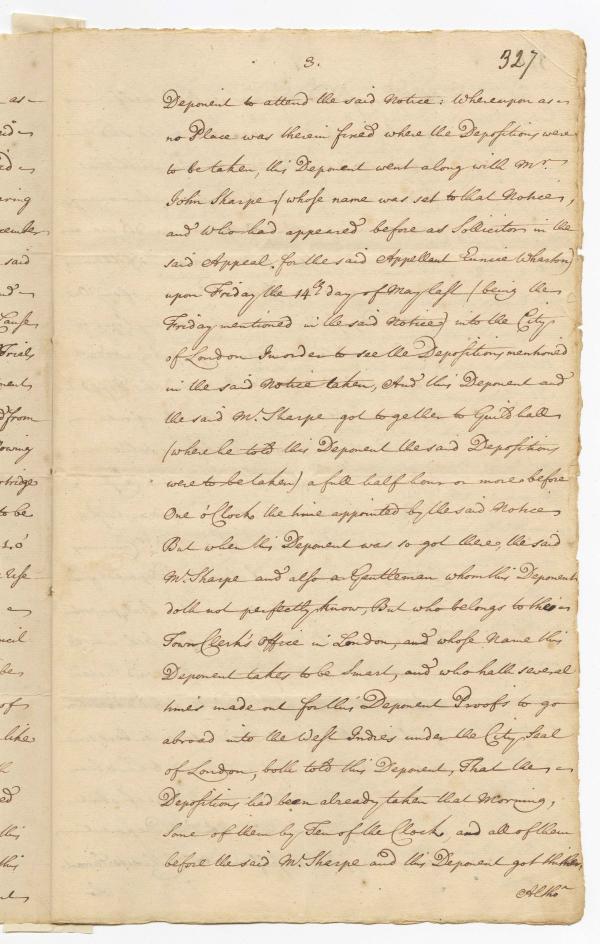 as
said
the
said
and
Cause
Trials
from
to be
be
of
like
this
this
3.
327
Deponent to attend the said Notice: Whereupon as
no Place was therein fixed where the Depositions were
to be taken, this Deponent went along with Mr.
John Sharpe (whose name was set to that Notice,
and Who had appeared before as Sollicitor in the
said Appeal, for the said Appellant Eunice Wharton)
upon Friday the 14th day of May last (being the
Friday mentioned in the said Notice) into the City
of London In order to see the Depositions mentioned
in the said Notice taken, And this Deponent and
the said Mr. Sharpe got together to Guildhall
(where he told this Deponent the said Depositions
were to be taken) a full half hour or more before
One o'Clock the time appointed by the said Notice
But when this Deponent was so got there, the said
Mr. Sharpe and also a Gentleman whom this Deponent
doth not perfectly know, But who belongs to the
Town Clerk's Office in London, and whose Name this
Deponent takes to be Smart, and who hath several
times made out for this Deponent Proofs to go
abroad into the West Indies under the City Seal
of London, both told this Deponent, That the
Depositions had been already taken that Morning,
some of them by Ten of the Clock, and all of them
before the said Mr. Sharpe and this Deponent got thither,
Altho'